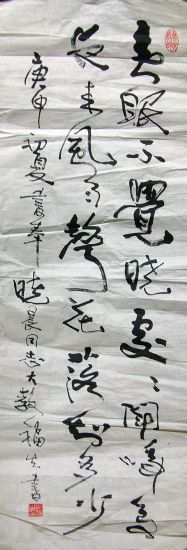 春眠不覺晓處々聞啼鳥
夜来風雨聲花落知多少
庚申初夏書奉晓晨同志大教福生書